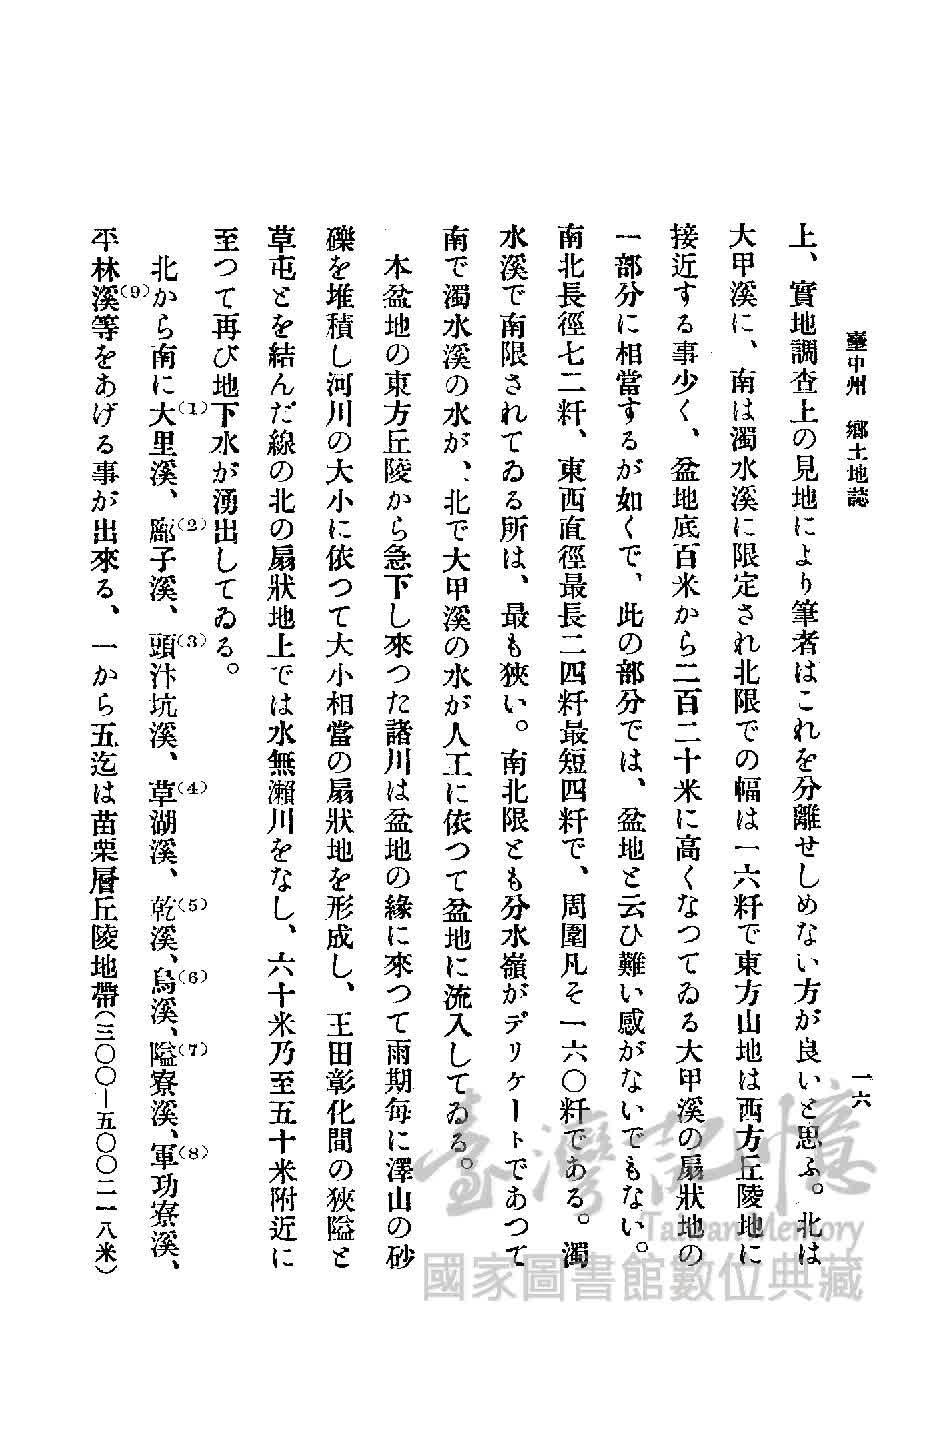 臺中州 鄉土地誌
一六
上、實地調查上の見地により筆者はこれを分離せしめない方が良いと思ふ。北は
大甲溪に、南は濁水溪に限定され北限での幅は一六粁で東方山地は西方丘陵地に
接近する事少く、盆地底百米から二百二十米に高くなつてゐる大甲溪の扇狀地の
一部分に相當するが如くで、此の部分では、盆地と云ひ難い感がないでもない。
南北長徑七二粁、東西直徑最長二四粁最短四粁で、周圍凡そ一六〇粁である。濁
水溪で南限されてゐる所は、最も狹い。南北限とも分水嶺がデリケートであつて
南で濁水溪の水が、北で大甲溪の水が人工に依つて盆地に流入してゐる。
本盆地の東方丘陵から急下し來つた諸川は盆地の緣に來つて雨期每に澤山の砂
礫を堆積し河川の大小に依つて大小相當の扇狀地を形成し、王田彰化間の狹隘と
草屯とを結んだ線の北の扇狀地上では水無瀨川をなし、六十米乃至五十米附近に
至つて再び地下水が湧出してゐる。
北から南に大里溪、(1)廍子溪、(2)頭汴坑溪、(3)草湖溪、(4)乾溪、(5)烏溪、(6)隘寮溪、(7)軍功寮溪、(8)
平林溪(9)等をあげる事が出來る、一から五迄は苗栗層丘陵地帶(三〇〇—五〇〇二一八米)
臺灣記憶
Taiwan Memory
國家圖書館數位典藏